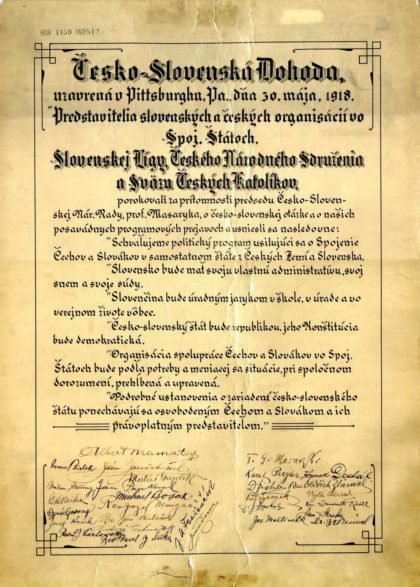 Česko-Slovenská Dohoda,
uzavrená v Pittsburghu, Pa., dňa 30. mája, 1918.
Predstavitelia slovenských a českých organisácií vo
Spoj. Štátoch,
Slovenskej Ligy, Českého Národného Sdruženia
a Sväzu Českých Katolíkov,
porokovali za prítomnosti predsedu Česko-Sloven-
skej Nár. Rady, prof. Masaryka, o česko-slovenskej otázke a o našich
posavádnych programových prejavoch a usniesli sa nasledovne:
"Schvaľujeme politický program usilujúci sa o Spojenie
Čechov a Slovákov v samostatnom štáte z Českých Zemí a Slovenska.
"Slovensko bude mať svoju vlastnú administratívu, svoj
snem a svoje súdy.
"Slovenčina bude úradným jazykom v škole, v úrade a vo
verejnom živote vôbec.
"Česko-slovenský štát bude republikou, jeho Konštitúcia
bude demokratická.
"Organisácia spolupráce Čechov a Slovákov vo Spoj.
Štátoch bude podľa potreby a meniacej sa situácie, pri spoločnom
dorozumení, prehĺbená a upravená.
"Podrobné ustanovenia o zariadení česko-slovenského
štátu ponechávajú sa osvobodeným Čechom a Slovákom a ich
právoplatným predstaviteľom."
Albert Mamatey
T. G. Masaryk
Karel Pergler
Michael Bosák